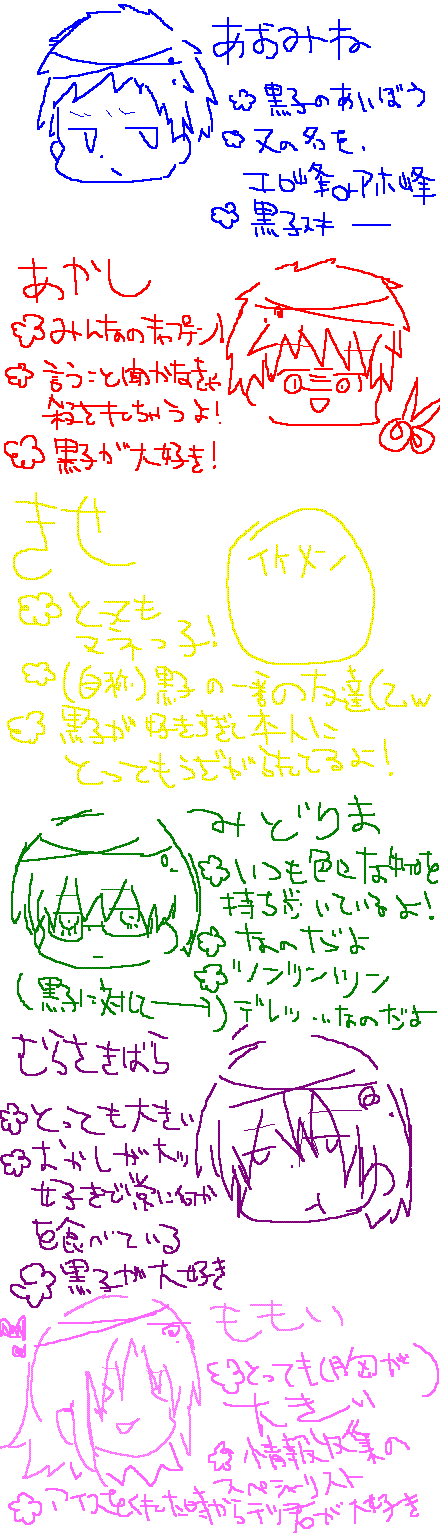 あおみね
黒子のあいぼう
又の名を、
エロ峰orアホ峰
黒子スキー
あかし
みんなのキャプテン!
言うこと聞かなきゃ
殺してしちゃうよ!
黒子が大好き!
きせ
イケメン
とっても
マネっ子!
(自称)黒子の一番の友達(乙w
黒子が好きすぎて本人に
とってもうざがられてるよ!
みどりま
いつも色んな物を
持ち歩いているよ!
なのだよ
ツンツンツン
(黒子に対して→)デレッ…なのだよ
むらさきばら
とっても大きい
おかしが大ッ
好きで常に何か
を食べている
黒子が大好き
ももい
とっても(胸が)
大きーい
情報収集の
スペシャリスト
アイスをくれた時からテツ君が大好き